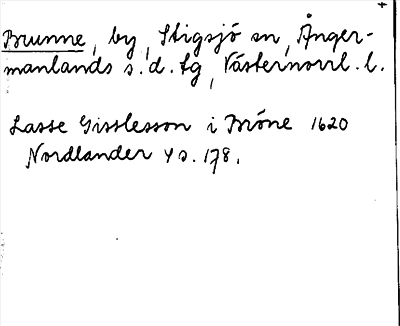 Brunne, by, Stigsjö sn, Ånger-
manlands s. d. tg, Västernorrl. l.
Lasse Gisslesson i Bröne 1620
Nordlander 4 s. 178.